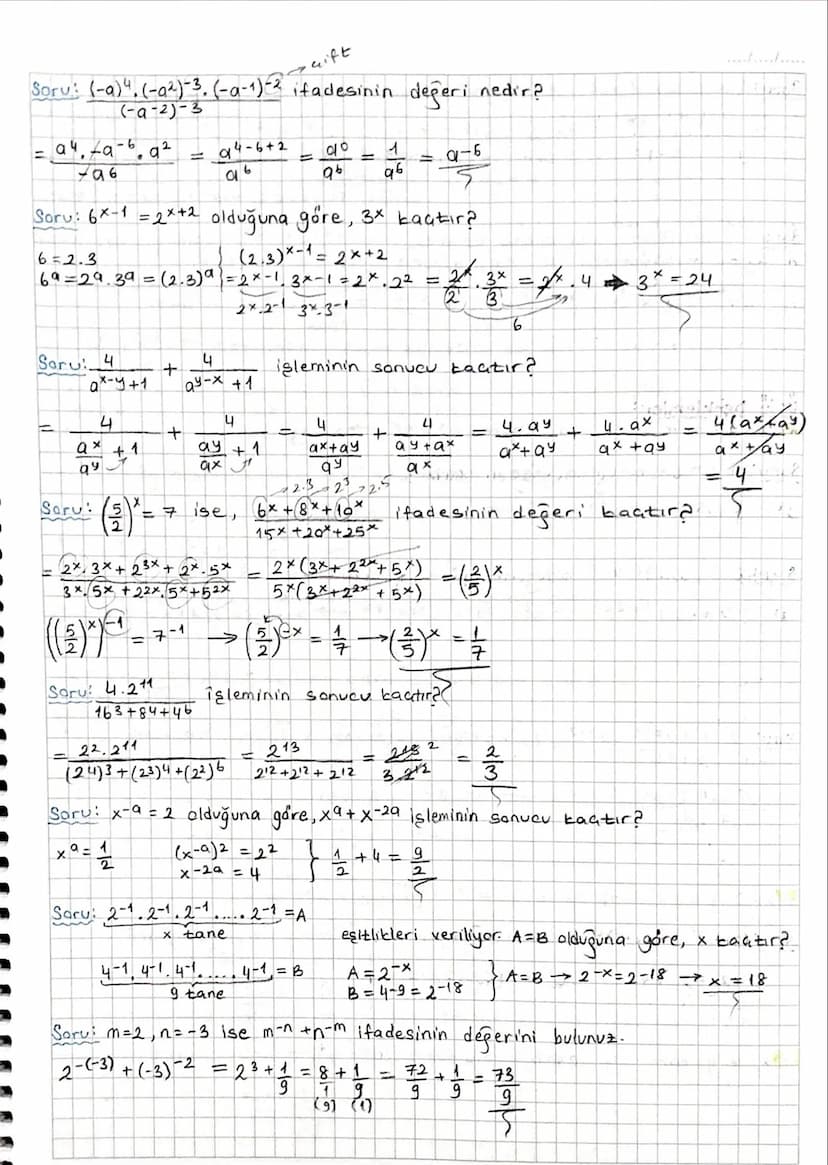 çift
Soru: (-a)⁴.(-a²)⁻³.(-a⁻¹)⁻² / (-a⁻²)⁻³ ifadesinin değeri nedir?
= a⁴.-a⁻⁶.a² / -a⁶ = a⁴⁻⁶⁺² / a⁶ = a⁰/a⁶ = 1/a⁶ = a⁻⁶
Soru: 6ˣ⁻¹ = 2ˣ⁺² olduğuna göre, 3ˣ kaçtır?
6=2.3 (2.3)ˣ⁻¹ = 2ˣ⁺²
6ᵃ=2ᵃ.3ᵃ=(2.3)ᵃ = 2ˣ⁻¹.3ˣ⁻¹ = 2ˣ.2² = 2ˣ/2 . 3ˣ/3 = 2ˣ.4 → 3ˣ = 24
2ˣ.2⁻¹ 3ˣ.3⁻¹ 6
Soru: 4/(aˣ⁻ʸ+1) + 4/(aʸ⁻ˣ+1) işleminin sonucu kaçtır?
= 4/(aˣ/aʸ + 1) + 4/(aʸ/aˣ + 1) = 4/((aˣ+aʸ)/aʸ) + 4/((aʸ+aˣ)/aˣ) = 4.aʸ/(aˣ+aʸ) + 4.aˣ/(aˣ+aʸ) = 4(aˣ+aʸ)/(aˣ+aʸ)
= 4
2.3 2³ 2.5
Soru: (5/2)ˣ = 7 ise, (6ˣ+8ˣ+10ˣ)/(15ˣ+20ˣ+25ˣ) ifadesinin değeri kaçtır?
= (2ˣ.3ˣ+2³ˣ+2ˣ.5ˣ)/(3ˣ.5ˣ+2²ˣ.5ˣ+5²ˣ) = 2ˣ(3ˣ+2²ˣ+5ˣ)/5ˣ(3ˣ+2²ˣ+5ˣ) = (2/5)ˣ
((5/2)ˣ)⁻¹ = 7⁻¹ → (5/2)⁻ˣ = 1/7 → (2/5)ˣ = 1/7
Soru: 4.2¹¹/(16³+8⁴+4⁶) işleminin sonucu kaçtır?
= 2².2¹¹/((2⁴)³+(2³)⁴+(2²)⁶) = 2¹³/(2¹²+2¹²+2¹²) = 2¹³ 2/3.2¹² = 2/3
Soru: x⁻ᵃ = 2 olduğuna göre, xᵃ+x⁻²ᵃ işleminin sonucu kaçtır?
xᵃ = 1/2 (x⁻ᵃ)² = 2² } 1/2 + 4 = 9/2
x⁻²ᵃ = 4
Soru: 2⁻¹.2⁻¹.2⁻¹.....2⁻¹ = A
x tane eşitlikleri veriliyor. A=B olduğuna göre, x kaçtır?
4⁻¹.4⁻¹.4⁻¹.....4⁻¹ = B A = 2⁻ˣ } A=B → 2⁻ˣ=2⁻¹⁸ → x=18
9 tane B = 4⁻⁹ = 2⁻¹⁸
Soru: m=2, n=-3 ise m⁻ⁿ+n⁻ᵐ ifadesinin değerini bulunuz.
2⁻⁽⁻³⁾+(-3)⁻² = 2³+1/9 = 8/1 + 1/9 = 72/9 + 1/9 = 73/9
(9) (1)